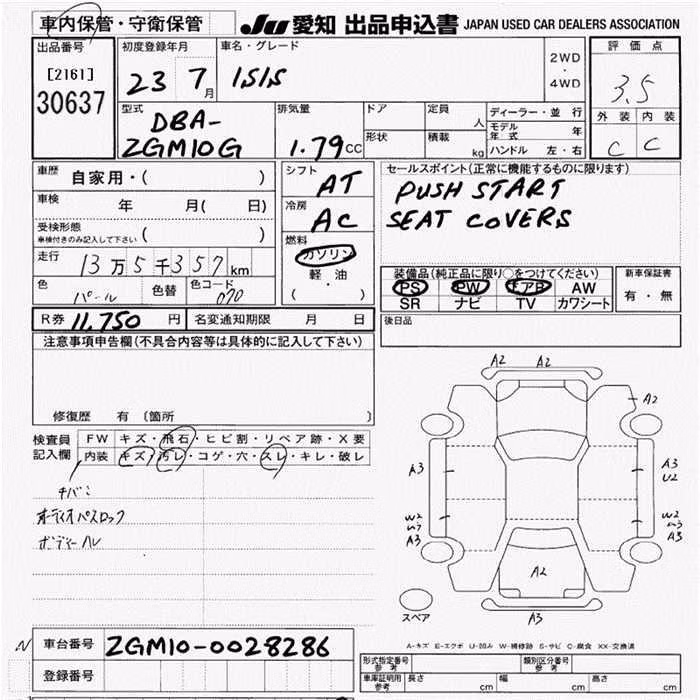 車内保管・守衛保管 JU 愛知 出品申込書 JAPAN USED CAR DEALERS ASSOCIATION
出品番号 初度登録年月 車名・グレード 2WD・4WD 評価点
[2161] 23 7月 ISIS 3.5
30637
型式 排気量 ドア 定員 人 ディーラー・並行 外装 内装
DBA-ZGM10G 1.79CC 形状 積載 kg モデル年式 年 C C
ハンドル 左・右
車歴 自家用・( ) シフト AT セールスポイント(正常に機能するものに限ります)
車検 年 月( 日) 冷房 AC PUSH START
受検形態 車検付きのみ記入して下さい ( ) SEAT COVERS
走行 13万5千357km 燃料 ガソリン
軽・油
( )
色 パール 色替 色コード 070
装備品(純正品に限り○をつけてください) 新車保証書
PS PW エアB AW 有・無
SR ナビ TV カワシート
R券 11,750円 名変通知期限 月 日 後日品
注意事項申告欄(不具合内容等は具体的に記入して下さい)
修復歴 有 〔箇所 〕
検査員記入欄 FW キズ・飛石・ヒビ割・リペア跡・X要
内装 キズ・汚レ・コゲ・穴・スレ・キレ・破レ
チバミ
オーディオパスロック
ボディーハレ
A2 A2
A2
A3 A3
U2
W2 W2
A3 A3
A2
スペア A3
A-キズ E-エクボ U-凹み W-補修跡 S-サビ C-腐食 XX-交換済
N 車台番号 ZGM10-0028286
登録番号
形式指定番号 参考 類別区分番号 参考
車庫証明用 参考 長さ cm 幅 cm 高さ cm